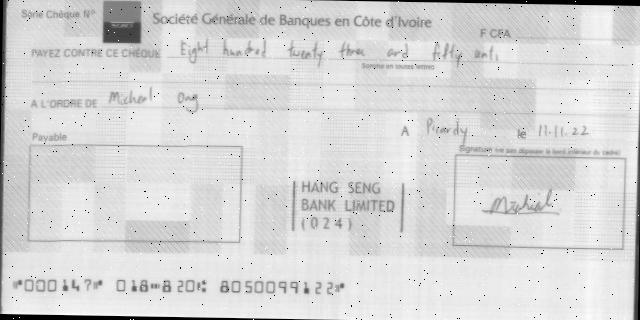 Série Chèque N°
Société Générale de Banques en Côte d'Ivoire
F CFA
PAYEZ CONTRE CE CHÈQUE Eight hundred twenty three and fifty
Somme en toutes lettres
A L'ORDRE DE Micheal Ong
A Picardy le 11.11.22
Payable
Signature (ne pas dépasser le bord intérieur du cadre)
HANG SENG
BANK LIMITED
(024)
Micheal
⑈000147⑈ 018⑉820⑆ 8050099122⑈